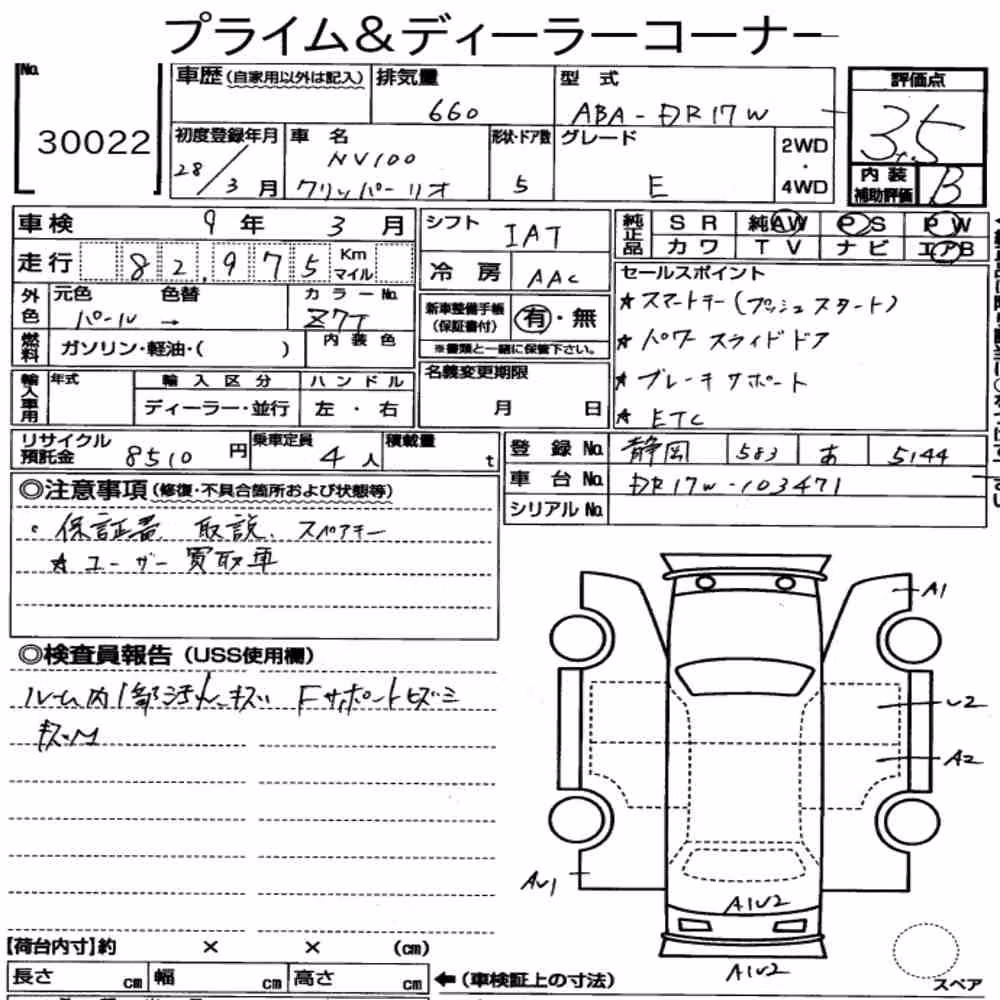 プライム&ディーラーコーナー
No. 30022
車歴(自家用以外は記入) 排気量 660
型式 ABA-DR17W
評価点 3.5
初度登録年月 28/3月
車名 NV100 クリッパーリオ
形状・ドア数 5
グレード E
2WD・4WD
内装補助評価 B
車検 9年 3月
シフト IAT
純正品 SR 純AW PS PW
カワ TV ナビ エアB
走行 82,975 Km マイル
冷房 AAC
セールスポイント
★スマートキー(プッシュスタート)
★パワースライドドア
★ブレーキサポート
★ETC
外色 元色 パール 色替 → カラーNo. Z7T
新車整備手帳(保証書付) 有・無
※書類と一緒に保管下さい。
燃料 ガソリン・軽油・( ) 内装色
輸入車用 年式 輸入区分 ディーラー・並行 ハンドル 左・右
名義変更期限 月 日
リサイクル預託金 8510円 乗車定員 4人 積載量 t
登録No. 静岡 583 あ 5144
車台No. DR17W-103471
シリアルNo.
◎注意事項(修復・不具合箇所および状態等)
。保証書 取説、スペアキー
★ユーザー買取車
◎検査員報告(USS使用欄)
ルーム内1部汚れ、キズ Fサポートヒズミ
キズ、M
A1
U2
A2
AU1
A1U2
A1U2
【荷台内寸】約 × × (cm)
長さ cm 幅 cm 高さ cm ←(車検証上の寸法)
スペア